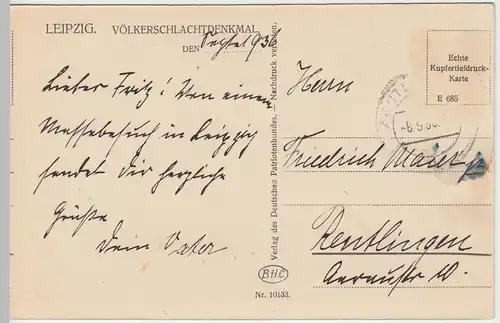 LEIPZIG. VÖLKERSCHLACHTDENKMAL.
DEN
Lieber Fritz! Von einem
Messebesuch in Leipzig
sendet dir herzliche
Grüße
Dein Vater
Verlag des Deutschen Patriotenbundes. — Nachdruck verboten.
BHC
Nr. 10133.
Echte
Kupfertiefdruck-
Karte
E 685
Herrn
Friedrich Maier
Reutlingen